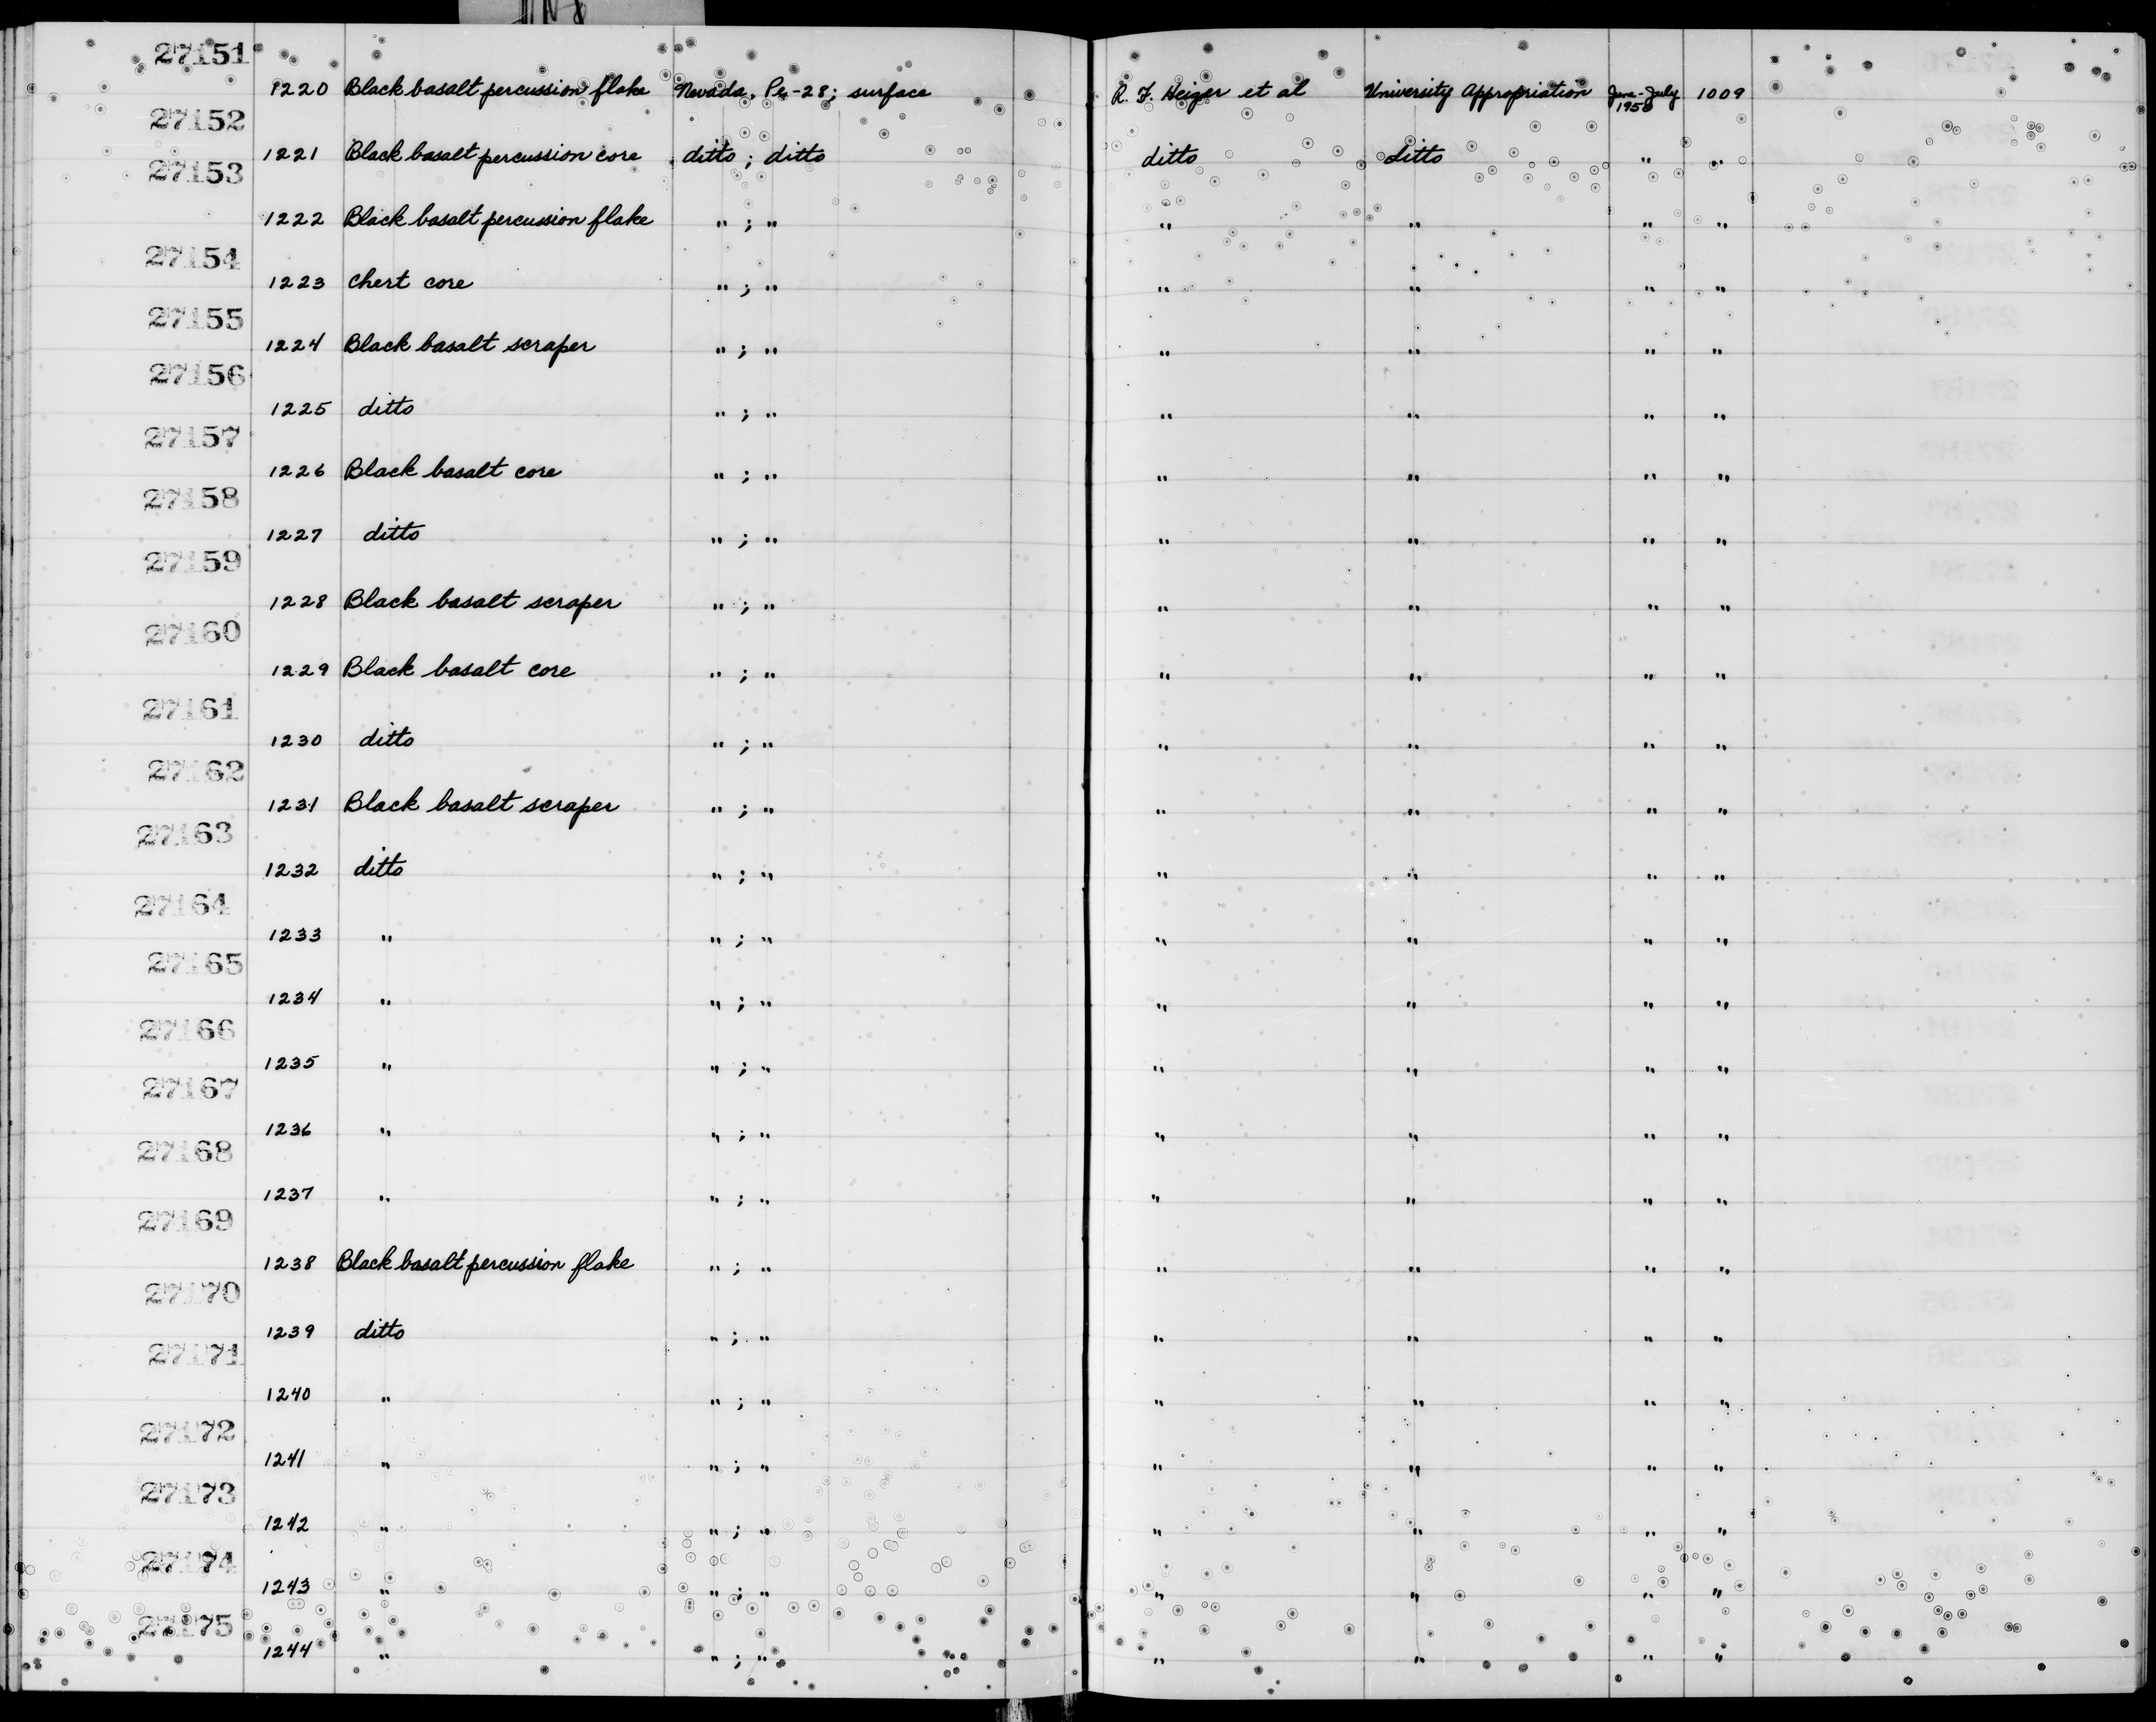 27151
1220 Black basalt percussion flake Nevada, Pe-28; surface R. F. Heizer et al University Appropriation June-July 1958 1009
27152
1221 Black basalt percussion core ditto ; ditto ditto ditto " "
27153
1222 Black basalt percussion flake " ; " " " " "
27154
1223 Chert core " ; " " " " "
27155
1224 Black basalt scraper " ; " " " " "
27156
1225 ditto " ; " " " " "
27157
1226 Black basalt core " ; " " " " "
27158
1227 ditto " ; " " " " "
27159
1228 Black basalt scraper " ; " " " " "
27160
1229 Black basalt core " ; " " " " "
27161
1230 ditto " ; " " " " "
27162
1231 Black basalt scraper " ; " " " " "
27163
1232 ditto " ; " " " " "
27164
1233 " " ; " " " " "
27165
1234 " " ; " " " " "
27166
1235 " " ; " " " " "
27167
1236 " " ; " " " " "
27168
1237 " " ; " " " " "
27169
1238 Black basalt percussion flake " ; " " " " "
27170
1239 ditto " ; " " " " "
27171
1240 " " ; " " " " "
27172
1241 " " ; " " " " "
27173
1242 " " ; " " " " "
27174
1243 " " ; " " " " "
27175
1244 " " ; " " " " "